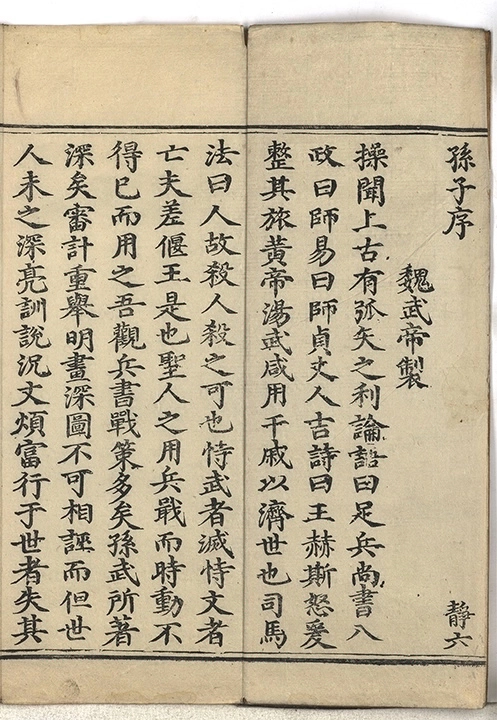 孫子序
靜六
魏武帝製
操聞上古有弧矢之利論語曰足兵尚書八
政曰師易曰師貞丈人吉詩曰王赫斯怒爰
整其旅黄帝湯武咸用干戚以濟世也司馬
法曰人故殺人殺之可也恃武者滅恃文者
亡夫差偃王是也聖人之用兵戢而時動不
得已而用之吾觀兵書戰策多矣孫武所著
深矣審計重舉明畫深圖不可相誣而但世
人未之深亮訓說況文煩富行于世者失其